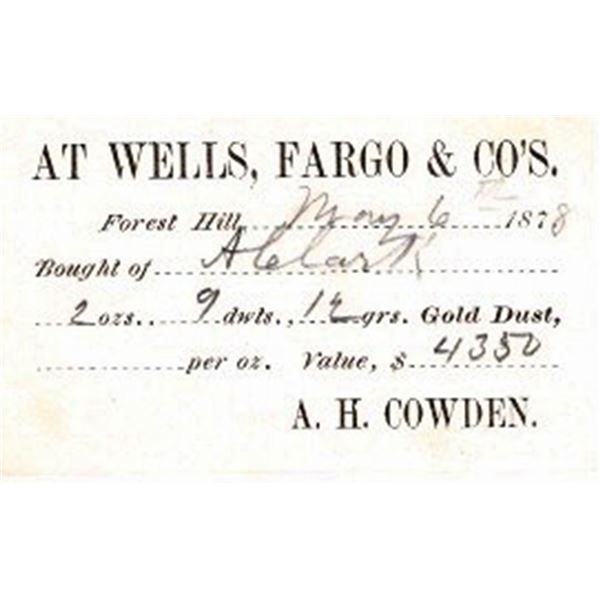 AT WELLS, FARGO & CO'S.
Forest Hill, May 6th 1878
Bought of A Clark
2 ozs. 9 dwts., 12 grs. Gold Dust,
per oz. Value, $ 4350
A. H. COWDEN.